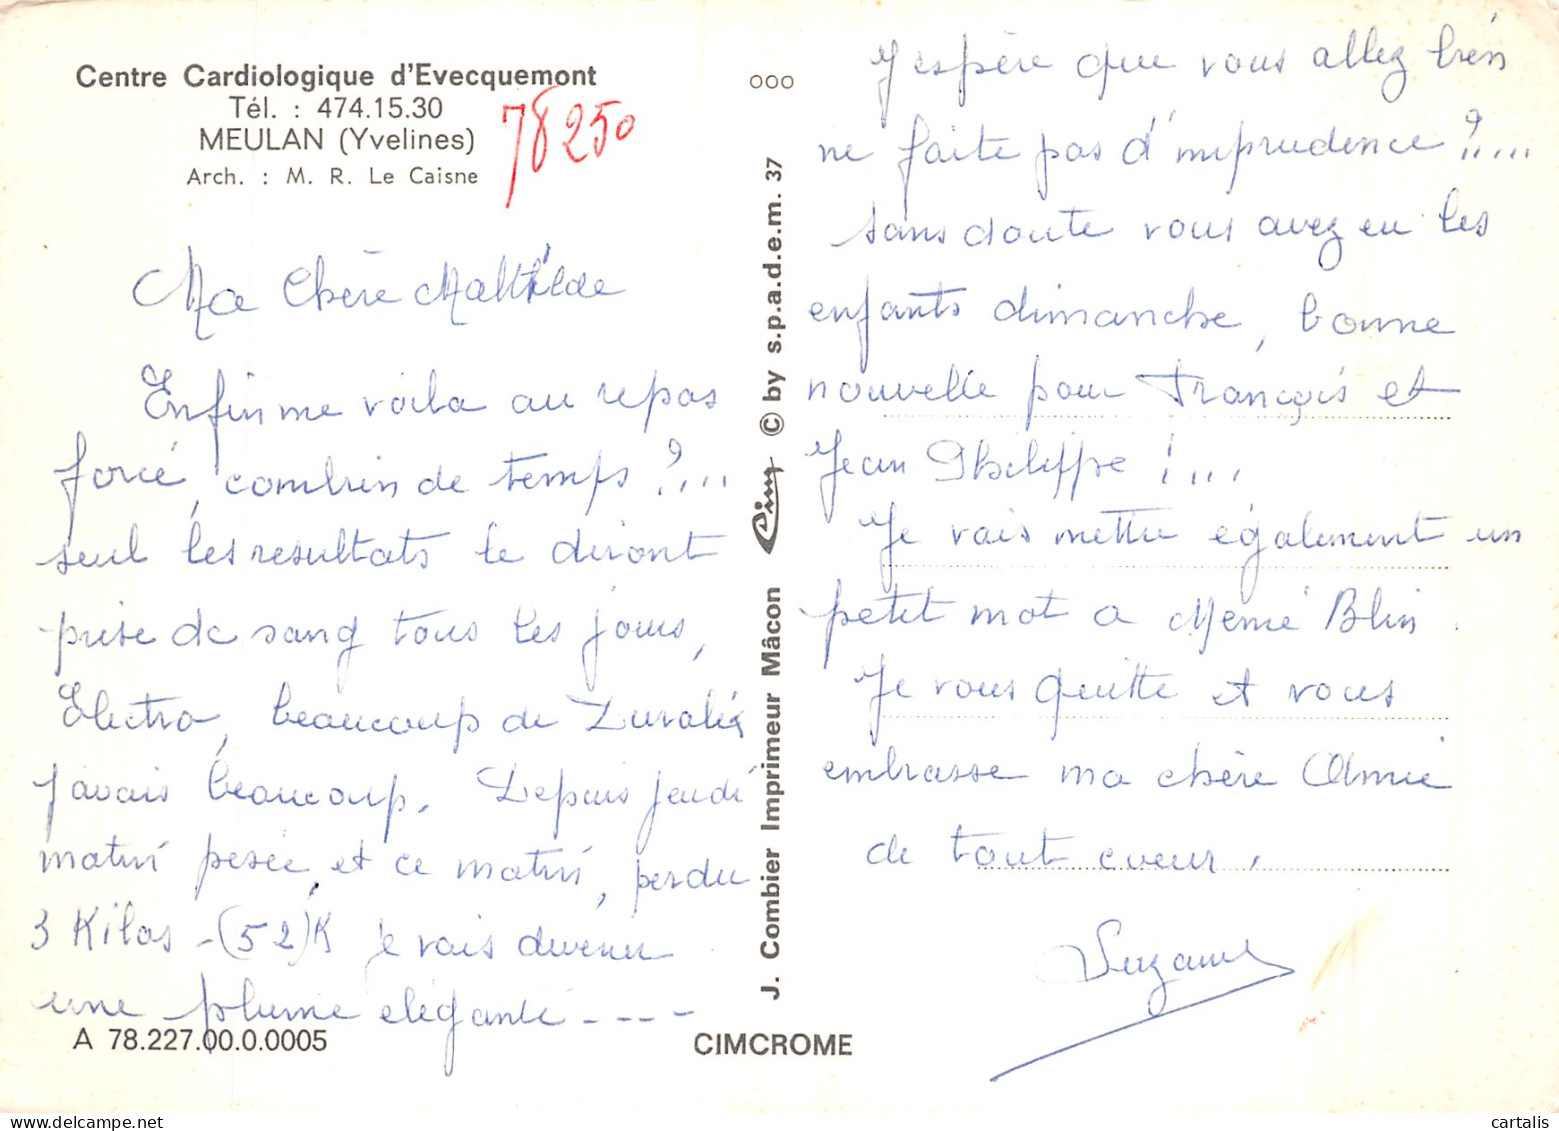 Centre Cardiologique d'Evecquemont
Tél. : 474.15.30
MEULAN (Yvelines)
Arch. : M. R. Le Caisne
78250
Ma Chère Mathilde
Enfin me voila au repos
forcé, combien de temps ?...
seul les resultats le diront
prise de sang tous les jours,
Electro, beaucoup de
j'avais beaucoup. Depuis jeudi
matin pesée, et ce matin, perdu
3 Kilos - (52)K je vais devenir
une plume elégante ----
A 78.227.00.0.0005
ooo
J. Combier Imprimeur Mâcon Cim © by s.p.a.d.e.m. 37
CIMCROME
J'espère que vous allez bien
ne faite pas d'imprudence ?....
sans doute vous avez eu les
enfants dimanche, bonne
nouvelle pour François et
Jean Philippe !...
Je vais mettre également un
petit mot a Mémé Blin.
Je vous quitte et vous
embrasse ma chère Amie
de tout coeur.
Suzanne
cartalis